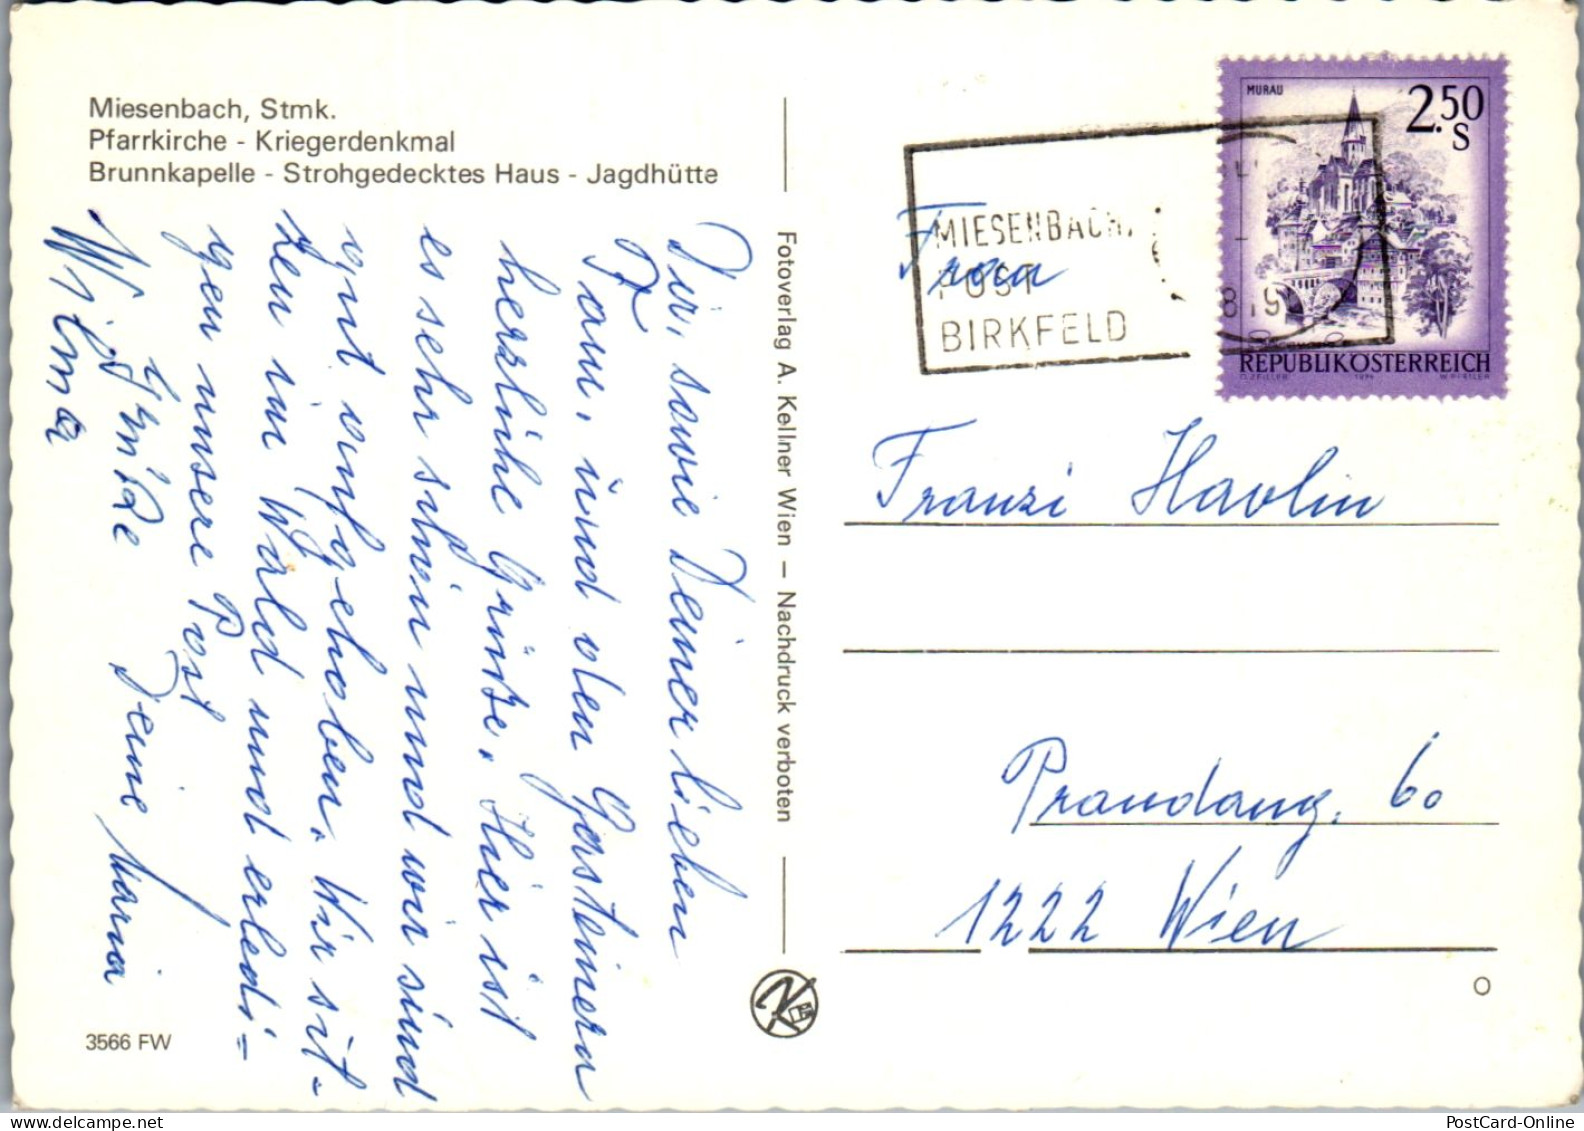 Miesenbach, Stmk.
Pfarrkirche - Kriegerdenkmal
Brunnkapelle - Strohgedecktes Haus - Jagdhütte
Dir, sowie Deiner lieben
Fam. und den Gasteinern
herzliche Grüße. Hier ist
es sehr schön und wir sind
gut aufgehoben. Wir sit-
zen im Wald und erledi=
gen unsere Post
Grüße Deine Maria
Wilma
3566 FW
Fotoverlag A. Kellner Wien – Nachdruck verboten
MURAU
2.50
S
REPUBLIK ÖSTERREICH
1974
MIESENBACH,
POST
BIRKFELD
Frau
Franzi Havlin
Prandaug. 60
1222 Wien
O
PostCard-Online